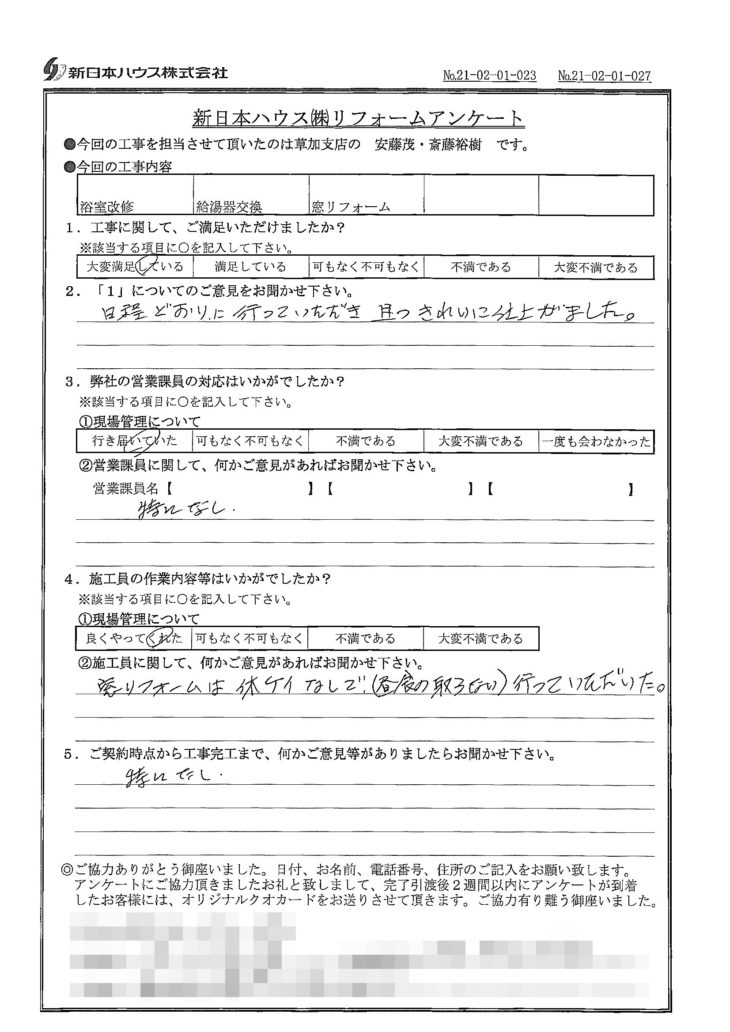 新日本ハウス株式会社
No.21-02-01-023 No.21-02-01-027
新日本ハウス㈱リフォームアンケート
●今回の工事を担当させて頂いたのは草加支店の 安藤茂・斎藤裕樹 です。
●今回の工事内容
浴室改修 給湯器交換 窓リフォーム
1．工事に関して、ご満足いただけましたか？
※該当する項目に○を記入して下さい。
大変満足している 満足している 可もなく不可もなく 不満である 大変不満である
2．「1」についてのご意見をお聞かせ下さい。
日程どおりに行っていただき 且つきれいに仕上がました。
3．弊社の営業課員の対応はいかがでしたか？
※該当する項目に○を記入して下さい。
①現場管理について
行き届いていた 可もなく不可もなく 不満である 大変不満である 一度も会わなかった
②営業課員に関して、何かご意見があればお聞かせ下さい。
営業課員名【 】【 】【 】
特になし.
4．施工員の作業内容等はいかがでしたか？
※該当する項目に○を記入して下さい。
①現場管理について
良くやってくれた 可もなく不可もなく 不満である 大変不満である
②施工員に関して、何かご意見があればお聞かせ下さい。
窓リフォームは休ケイなしで(昼食の取らない)行っていただいた。
5．ご契約時点から工事完工まで、何かご意見等がありましたらお聞かせ下さい。
特になし.
◎ご協力ありがとう御座いました。日付、お名前、電話番号、住所のご記入をお願い致します。
アンケートにご協力頂きましたお礼と致しまして、完了引渡後2週間以内にアンケートが到着
したお客様には、オリジナルクオカードをお送りさせて頂きます。ご協力有り難う御座いました。